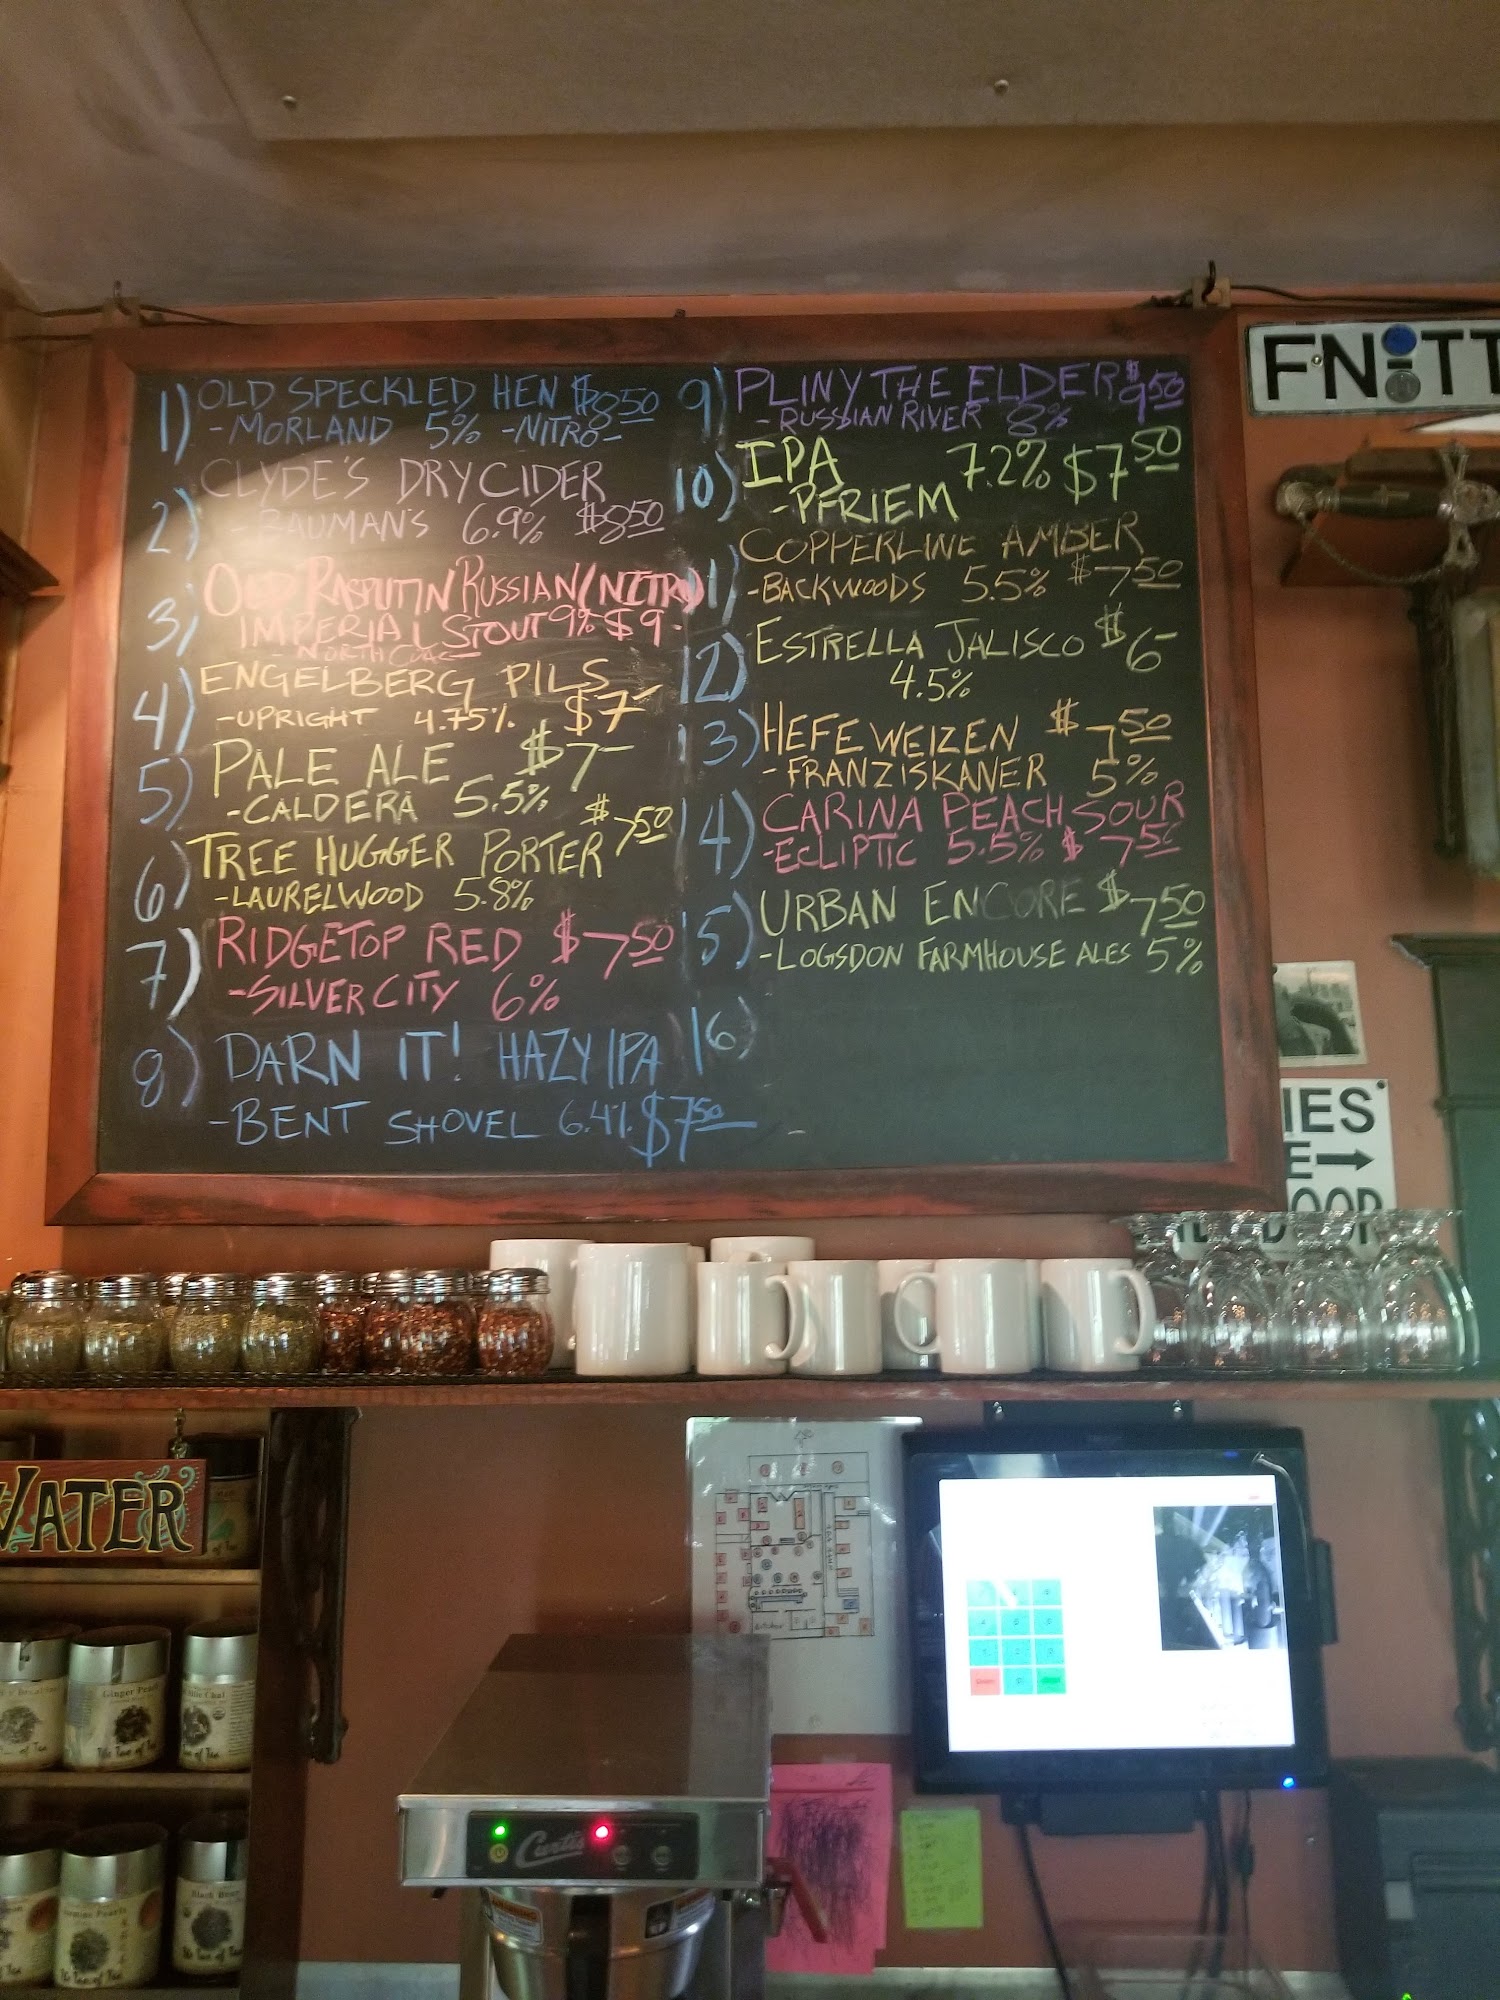 1) OLD SPECKLED HEN $8.50
-MORLAND 5% -NITRO-
2) CLYDE'S DRY CIDER
-BAUMAN'S 6.9% $8.50
3) OLD RASPUTIN RUSSIAN (NITRO)
IMPERIAL STOUT 9% $9-
-NORTH COAST
4) ENGELBERG PILS
-UPRIGHT 4.75% $7-
5) PALE ALE $7-
-CALDERA 5.5%
6) TREE HUGGER PORTER $7.50
-LAURELWOOD 5.8%
7) RIDGETOP RED $7.50
-SILVER CITY 6%
8) DARN IT! HAZY IPA
-BENT SHOVEL 6.4% $7.50
9) PLINY THE ELDER $9.50
-RUSSIAN RIVER 8%
10) IPA 7.2% $7.50
-PFRIEM
11) COPPERLINE AMBER
-BACKWOODS 5.5% $7.50
12) ESTRELLA JALISCO $6-
4.5%
13) HEFEWEIZEN $7.50
-FRANZISKANER 5%
14) CARINA PEACH SOUR
-ECLIPTIC 5.5% $7.50
15) URBAN ENCORE $7.50
-LOGSDON FARMHOUSE ALES 5%
16)
FN TT
IES
E→
DOOR
WATER
Ginger Peach
The Tao of Tea
Chai
The Tao of Tea
Jasmine Pearls
The Tao of Tea
Black
The Tao of Tea
Curtis